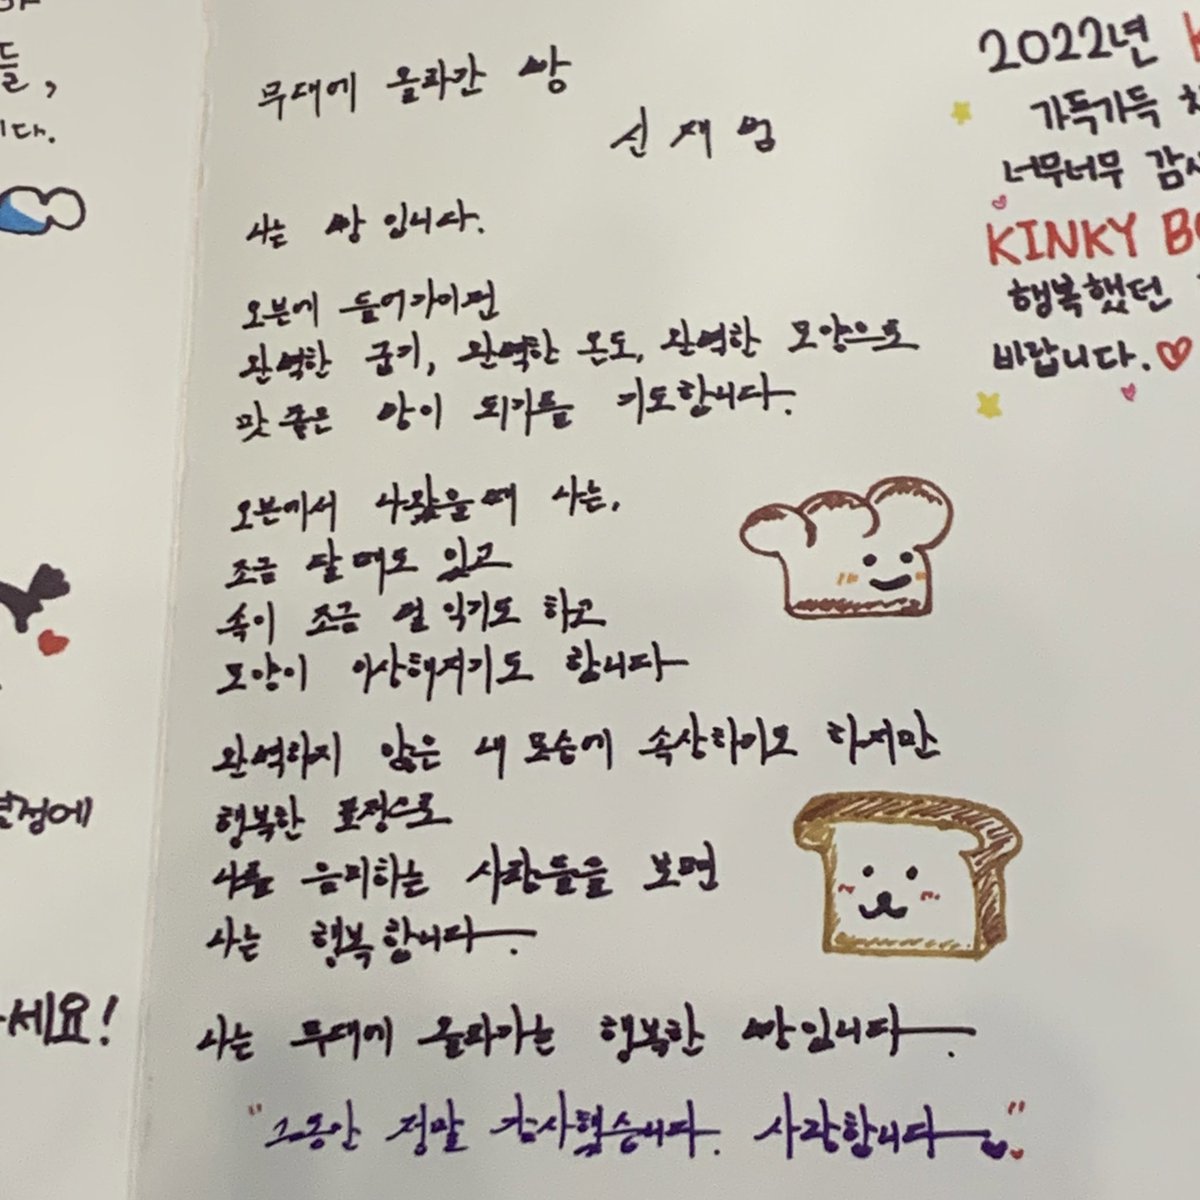 들,
니다.
결정에
세요!
무대에 올라간 빵
신재범
나는 빵입니다.
오븐에 들어가이면
완벽한 굽기, 완벽한 온도, 완벽한 모양으로
맛 좋은 빵이 되기를 기도합니다.
오븐에서 나왔을 때 나는,
조금 탈 때도 있고
속이 조금 덜 익기도 하고
모양이 이상해지기도 합니다
완벽하지 않은 내 모습에 속상하기도 하지만
행복한 표정으로
나를 음미하는 사람들을 보면
나는 행복합니다.
나는 무대에 올라가는 행복한 빵입니다.
"그동안 정말 감사했습니다. 사랑합니다"
2022년
가득가득
너무너무
KINKY
행복했던
바랍니다.